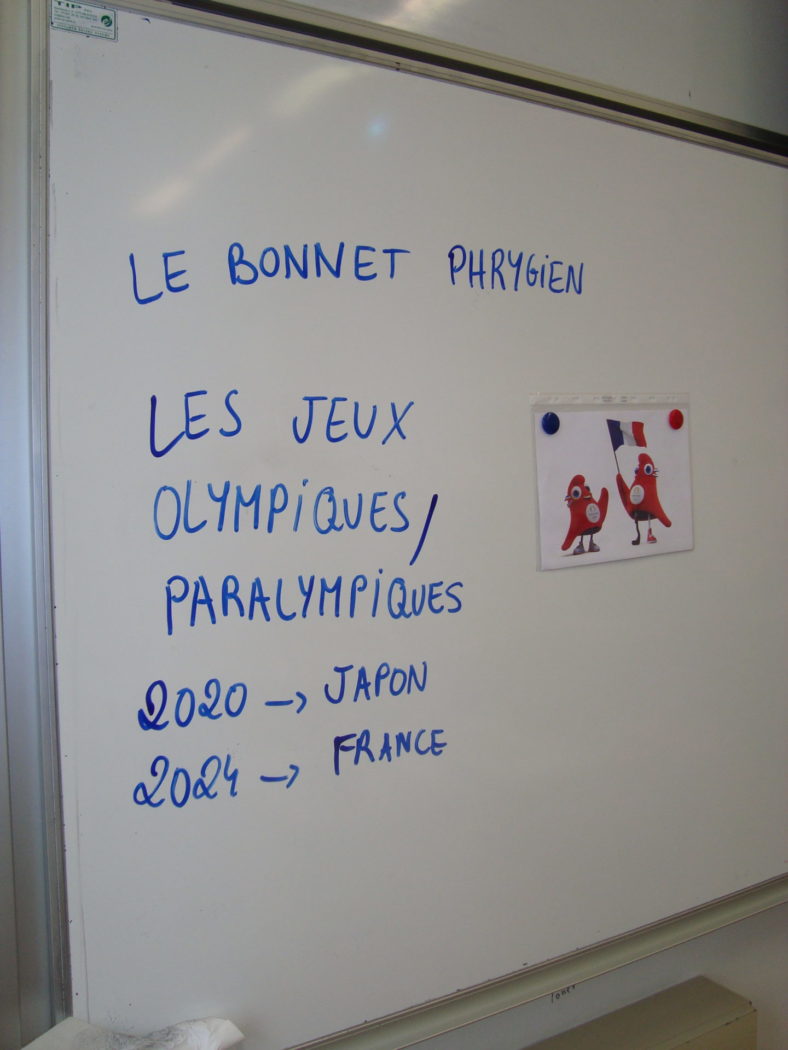 LE BONNET PHRYGiEN
LES JEUX
OLYMPiQUES/
PARALYMPiQUES
2020 → JAPON
2024 → FRANCE